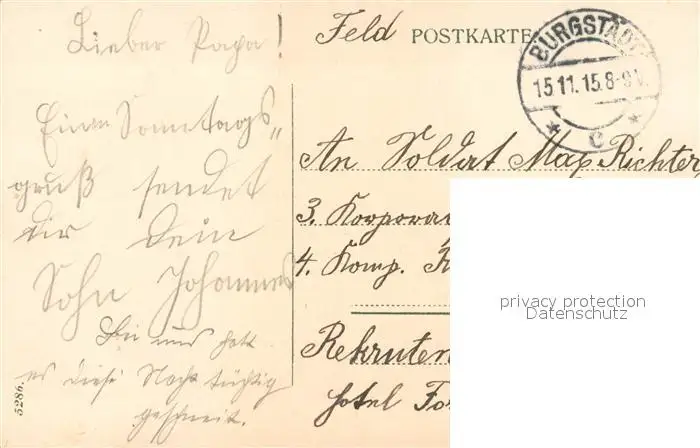 Lieber Papa!
Einen Sonntags„
gruß sendet
dir dein
Sohn Johannes
Bei uns hat
es diese Nacht tüchtig
geschneit.
5286.
Feld POSTKARTE
BURGSTÄDT
15.11.15.8-9V.
* c *
An Soldat Max Richter,
3. Korpora
4. Komp.
Rekruten
Hotel
privacy protection
Datenschutz